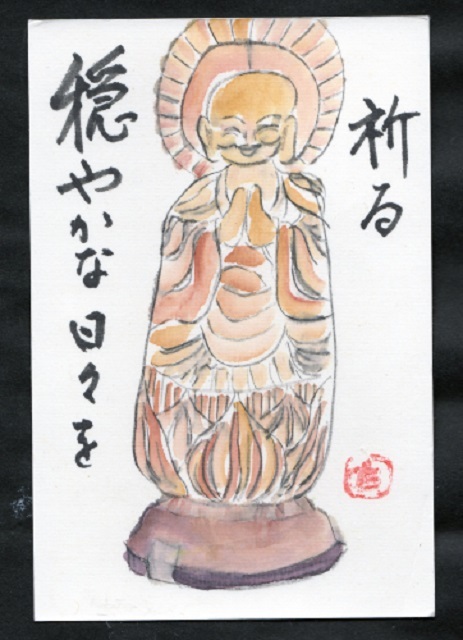 祈る
穏やかな日々を